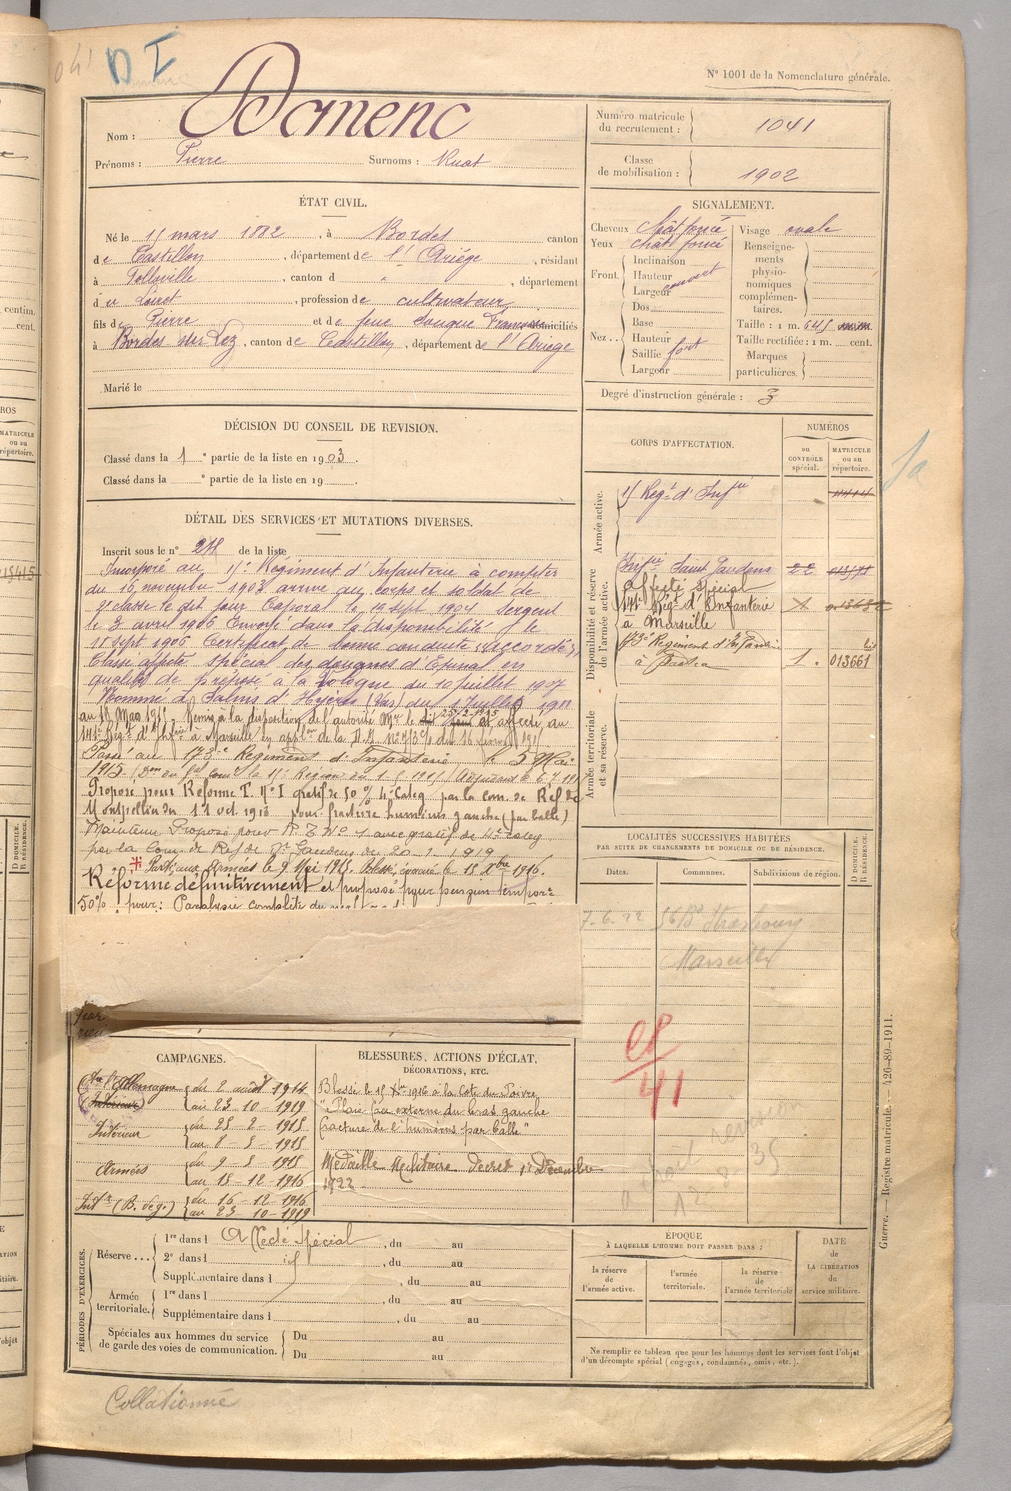 D I
N° 1001 de la Nomenclature générale.
Nom : Domenc
Prénoms : Pierre Surnoms : Ruat
Numéro matricule du recrutement : 1041
Classe de mobilisation : 1902
ÉTAT CIVIL.
Né le 15 mars 1882, à Bordes canton
de Castillon, département de l'Ariège, résidant
à Tollaville, canton d " , département
du Loiret, profession de cultivateur
fils de Pierre et de feue Souque Françoise domiciliés
à Bordes sur Lez, canton de Castillon, département de l'Ariège
Marié le
SIGNALEMENT.
Cheveux chât foncé
Yeux chât foncé
Front Inclinaison
Hauteur
Largeur couvert
Nez Dos
Base
Hauteur
Saillie fort
Largeur
Visage ovale
Renseignements physionomiques complémentaires.
Taille : 1 m. 645
Taille rectifiée : 1 m. cent.
Marques particulières.
Degré d'instruction générale : 3
DÉCISION DU CONSEIL DE REVISION.
Classé dans la 1e partie de la liste en 1903.
Classé dans la e partie de la liste en 19
DÉTAIL DES SERVICES ET MUTATIONS DIVERSES.
Inscrit sous le n° de la liste
Incorporé au 15e Régiment d'Infanterie à compter
du 16 novembre 1903 arrivé au corps et soldat de
2e classe le dit jour Caporal le 19 sept 1904 Sergent
le 3 avril 1906 Envoyé dans la disponibilité le
18 sept 1906 Certificat de bonne conduite "accordé"
Classé affecté spécial des douanes d'Épinal en
qualité de préposé à la Pologne du 10 juillet 1907
Nommé à Salins d'Hyères (Var) du 1 Juillet 1911
au 18 Mars 1915. Remis à la disposition de l'autorité Mre le 25-2-1915 et affecté au
141e Régt d'Infrie à Marseille en applon de la D.M. du 16 février 1915
Passé au 173e Régiment d'Infanterie, le 5 Mai
1915
Proposé pour Réforme T. N° I gratif de 50 % 4e Categ par la com. de Réf de
Montpellier du 11 oct. 1918 pour: fracture humérus gauche (par balle)
Maintenu Proposé pour R.T. N° 1 avec gratif de 4e categ
par la Com. de Réf de St Gaudens du 20-1-1919
* Parti aux Armées le 9 Mai 1915. Blessé, évacué le 15 Xbre 1916.
Réformé définitivement et proposé pour pension tempore
50% pour: Paralysie complète du
CORPS D'AFFECTATION.
NUMÉROS
du contrôle spécial.
MATRICULE ou au répertoire.
Armée active.
15 Régt d'Infie
Disponibilité et réserve de l'armée active.
Infie Saint Gaudens 22
affecté spécial
141e Régt d'Infanterie
à Marseille
173e Régiment d'Infanterie
à Bastia 1. 013661 bis
Armée territoriale et sa réserve.
LOCALITÉS SUCCESSIVES HABITÉES
PAR SUITE DE CHANGEMENTS DE DOMICILE OU DE RÉSIDENCE.
Dates. Communes. Subdivisions de région. D DOMICILE. R RÉSIDENCE.
7.6.22 56 Bd Strasbourg
Marseille
41
CAMPAGNES.
Cte l'Allemagne du 2 août 1914
(Intérieur) au 23-10-1919
Intérieur du 25-2-1915
au 8-5-1915
Armées du 9-5-1915
au 15-12-1916
Intr (B. de g.) du 16-12-1916
au 23-10-1919
BLESSURES, ACTIONS D'ÉCLAT,
DÉCORATIONS, ETC.
Blessé le 15 Xbre 1916 à la Cote du Poivre
"Plaie face externe du bras gauche
fracture de l'humérus par balle"
Médaille Militaire Décret 1r Décembre
1922
PÉRIODES D'EXERCICES.
Réserve... 1re dans l Affecté Spécial, du au
2e dans l id
Supplémentaire dans l , du au
Armée territoriale. 1re dans l , du au
Supplémentaire dans l , du au
Spéciales aux hommes du service de garde des voies de communication. Du au
Du au
ÉPOQUE
À LAQUELLE L'HOMME DOIT PASSER DANS :
la réserve de l'armée active.
l'armée territoriale.
la réserve de l'armée territoriale
DATE de LA LIBÉRATION du service militaire.
Ne remplir ce tableau que pour les hommes dont les services font l'objet
d'un décompte spécial (engagés, condamnés, omis, etc.).
Guerre. — Registre matricule. — 426-89-1911.
Collationné